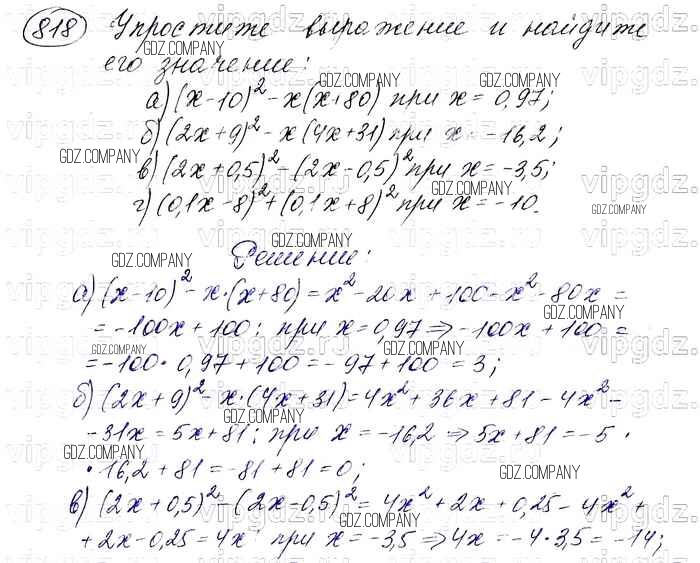 818 Упростите выражение и найдите
его значение:
а) (x-10)² - x(x+80) при x = 0,97;
б) (2x+9)² - x(4x+31) при x = -16,2;
в) (2x+0,5)² - (2x-0,5)² при x = -3,5;
г) (0,1x-8)² + (0,1x+8)² при x = -10.
Решение:
а) (x-10)² - x·(x+80) = x² - 20x + 100 - x² - 80x =
= -100x + 100; при x = 0,97 ⇒ -100x + 100 =
= -100·0,97 + 100 = -97 + 100 = 3;
б) (2x+9)² - x·(4x+31) = 4x² + 36x + 81 - 4x² -
- 31x = 5x + 81; при x = -16,2 ⇒ 5x + 81 = -5·
·16,2 + 81 = -81 + 81 = 0;
в) (2x+0,5)² - (2x-0,5)² = 4x² + 2x + 0,25 - 4x² +
+ 2x - 0,25 = 4x; при x = -3,5 ⇒ 4x = -4·3,5 = -14;
GDZ.COMPANY
vipgdz.ru